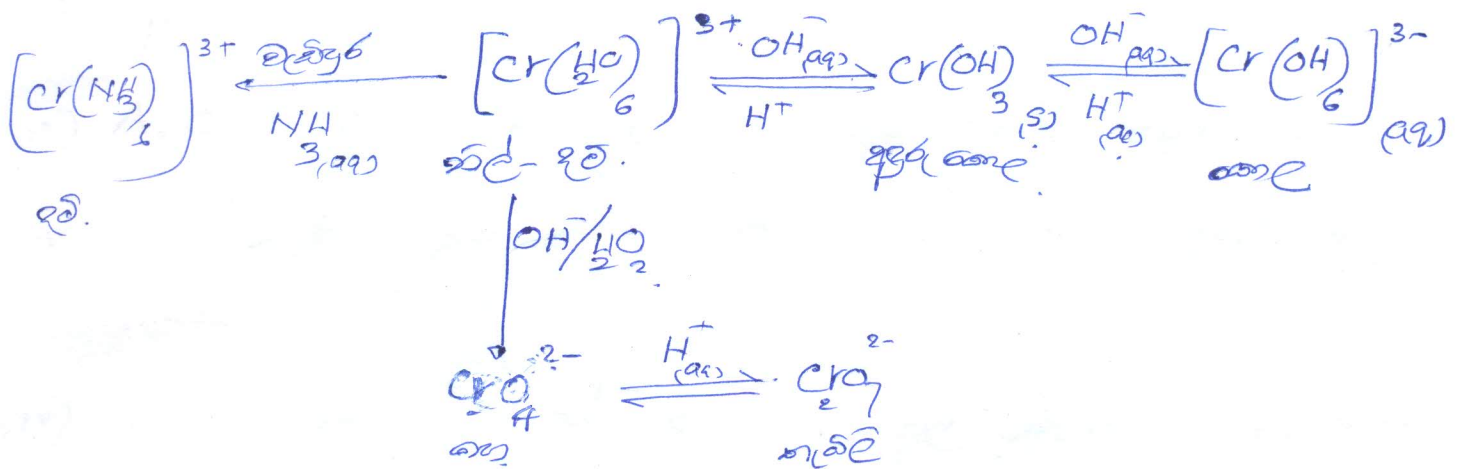 [Cr(NH3)6]3+ වැඩිපුර NH3(aq) [Cr(H2O)6]3+ OH-(aq) H+ Cr(OH)3(s) OH-(aq) H+(aq) [Cr(OH)6]3-(aq)
දම්. නිල්-දම්. අඳුරු කොල. කොල
OH-/H2O2
CrO4 2- H+(aq) Cr2O7 2-
කහ තැඹිලි